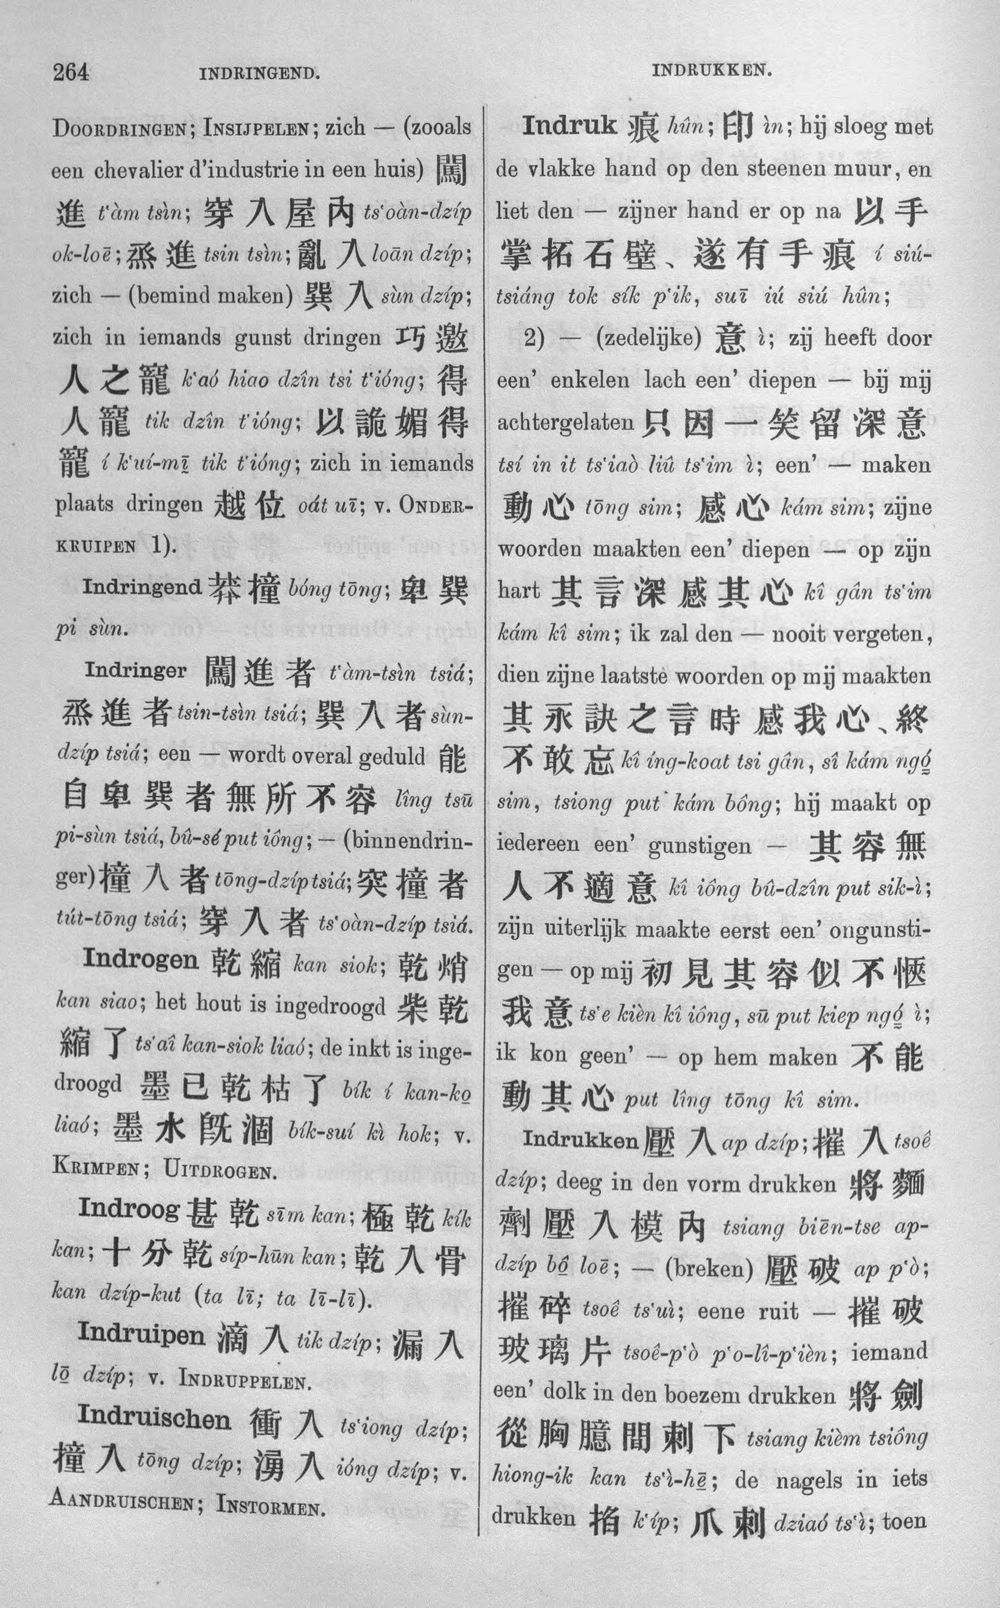 264 INDRINGEND.
INDRUKKEN.
DOORDRINGEN; INSIJPELEN; zich — (zooals
een chevalier d'industrie in een huis) 闖
進 t'àm tsìn; 穿入屋內 ts'oàn-dzíp
ok-loē; 烝進 tsin tsìn; 亂入 loān dzíp;
zich — (bemind maken) 巽入 sùn dzíp;
zich in iemands gunst dringen 巧邀
人之寵 k'aó hiao dzîn tsi t'ióng; 得
人寵 tik dzîn t'ióng; 以詭媚得
寵 í k'uí-mī tik t'ióng; zich in iemands
plaats dringen 越位 oát uī; v. ONDER-
KRUIPEN 1).
Indringend 莽撞 bóng tōng; 卑巽
pi sùn.
Indringer 闖進者 t'àm-tsìn tsiá;
烝進者 tsin-tsìn tsiá; 巽入者 sùn-
dzíp tsiá; een — wordt overal geduld 能
自卑巽者無所不容 lîng tsū
pi-sùn tsiá, bû-sé put iông; — (binnendrin-
ger) 撞入者 tōng-dzíp tsiá; 突撞者
tút-tōng tsiá; 穿入者 ts'oàn-dzíp tsiá.
Indrogen 乾縮 kan siok; 乾焇
kan siao; het hout is ingedroogd 柴乾
縮了 ts'aî kan-siok liaó; de inkt is inge-
droogd 墨已乾枯了 bík í kan-ko̱
liaó; 墨水旣涸 bík-suí kì hok; v.
KRIMPEN; UITDROGEN.
Indroog 甚乾 sīm kan; 極乾 kík
kan; 十分乾 síp-hūn kan; 乾入骨
kan dzíp-kut (ta lī; ta lī-lī).
Indruipen 滴入 tik dzíp; 漏入
lō̱ dzíp; v. INDRUPPELEN.
Indruischen 衝入 ts'iong dzíp;
撞入 tōng dzíp; 湧入 ióng dzíp; v.
AANDRUISCHEN; INSTORMEN.
Indruk 痕 hûn; 印 ìn; hij sloeg met
de vlakke hand op den steenen muur, en
liet den — zijner hand er op na 以手
掌拓石壁、遂有手痕 í siú-
tsiáng tok sík p'ik, suī iú siú hûn;
2) — (zedelijke) 意 ì; zij heeft door
een' enkelen lach een' diepen — bij mij
achtergelaten 只因一笑留深意
tsí in it ts'iaò liû ts'im ì; een' — maken
動心 tōng sim; 感心 kám sim; zijne
woorden maakten een' diepen — op zijn
hart 其言深感其心 kî gân ts'im
kám kî sim; ik zal den — nooit vergeten,
dien zijne laatste woorden op mij maakten
其永訣之言時感我心、終
不敢忘 kî íng-koat tsi gân, sî kám ngó̱
sim, tsiong put kám bông; hij maakt op
iedereen een' gunstigen — 其容無
人不適意 kî iông bû-dzîn put sik-ì;
zijn uiterlijk maakte eerst een' ongunsti-
gen — op mij 初見其容似不愜
我意 ts'e kièn kî iông, sū put kiep ngó̱ ì;
ik kon geen' — op hem maken 不能
動其心 put lîng tōng kî sim.
Indrukken 壓入 ap dzíp; 摧入 tsoê
dzíp; deeg in den vorm drukken 將麵
劑壓入模內 tsiang biēn-tse ap-
dzíp bô̱ loē; — (breken) 壓破 ap p'ò;
摧碎 tsoê ts'uì; eene ruit — 摧破
玻璃片 tsoê-p'ò p'o-lî-p'ièn; iemand
een' dolk in den boezem drukken 將劍
從胸臆間刺下 tsiang kièm tsiông
hiong-ik kan ts'ì-hē̱; de nagels in iets
drukken 掐 k'íp; 爪刺 dziaó ts'ì; toen